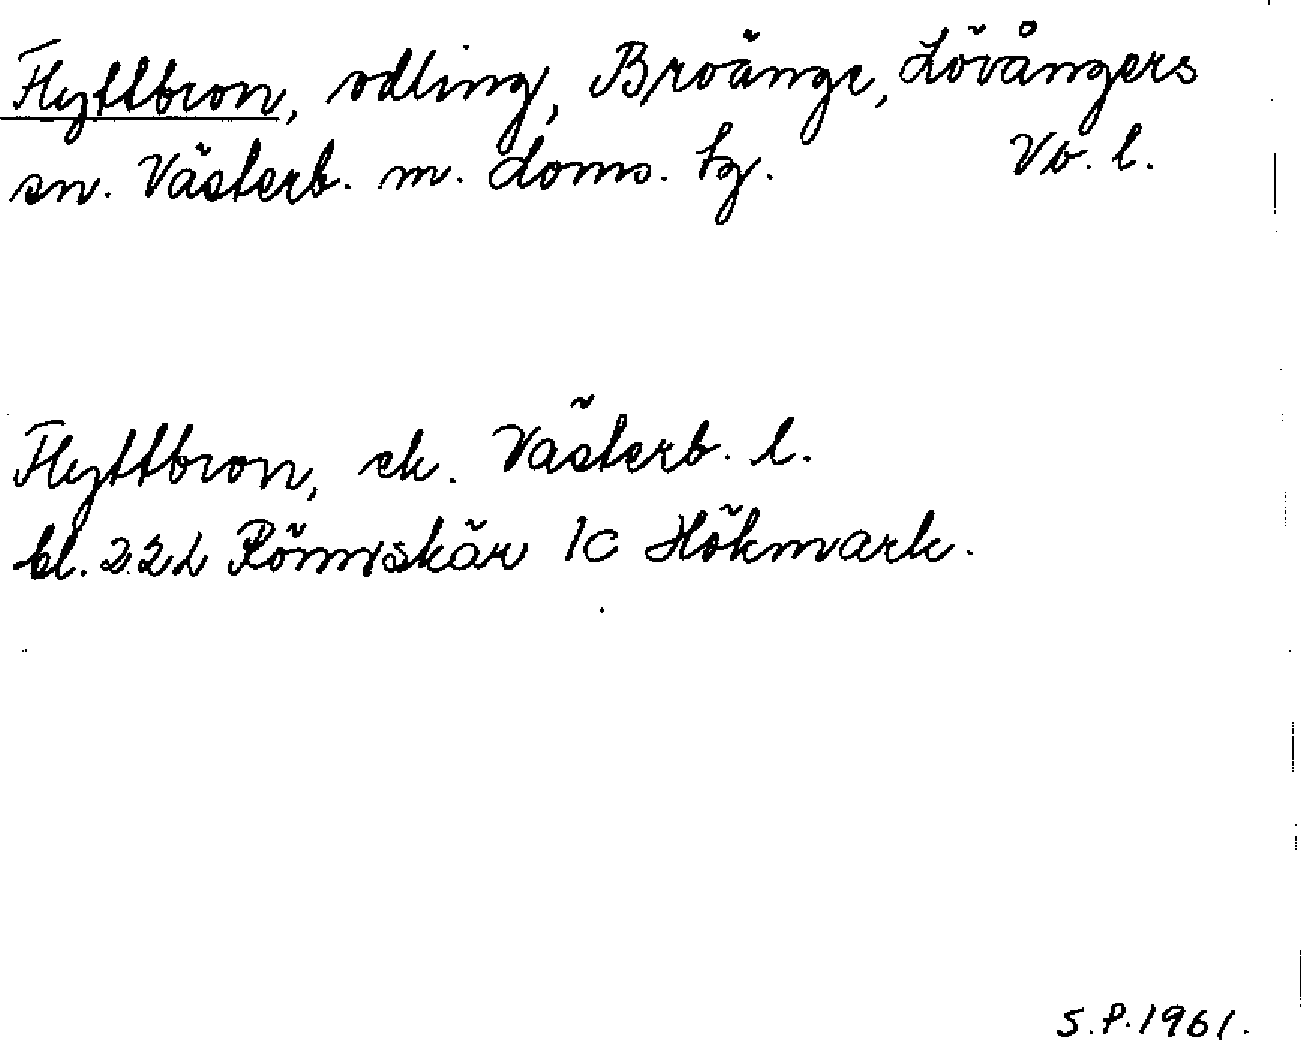 Flyttbron, odling, Broänge, Lövångers
sn. Västerb. m. doms. tg. Vb. l.
Flyttbron, ek. Västerb. l.
bl. 22L Rönnskär 1c Hökmark.
S.P. 1961.